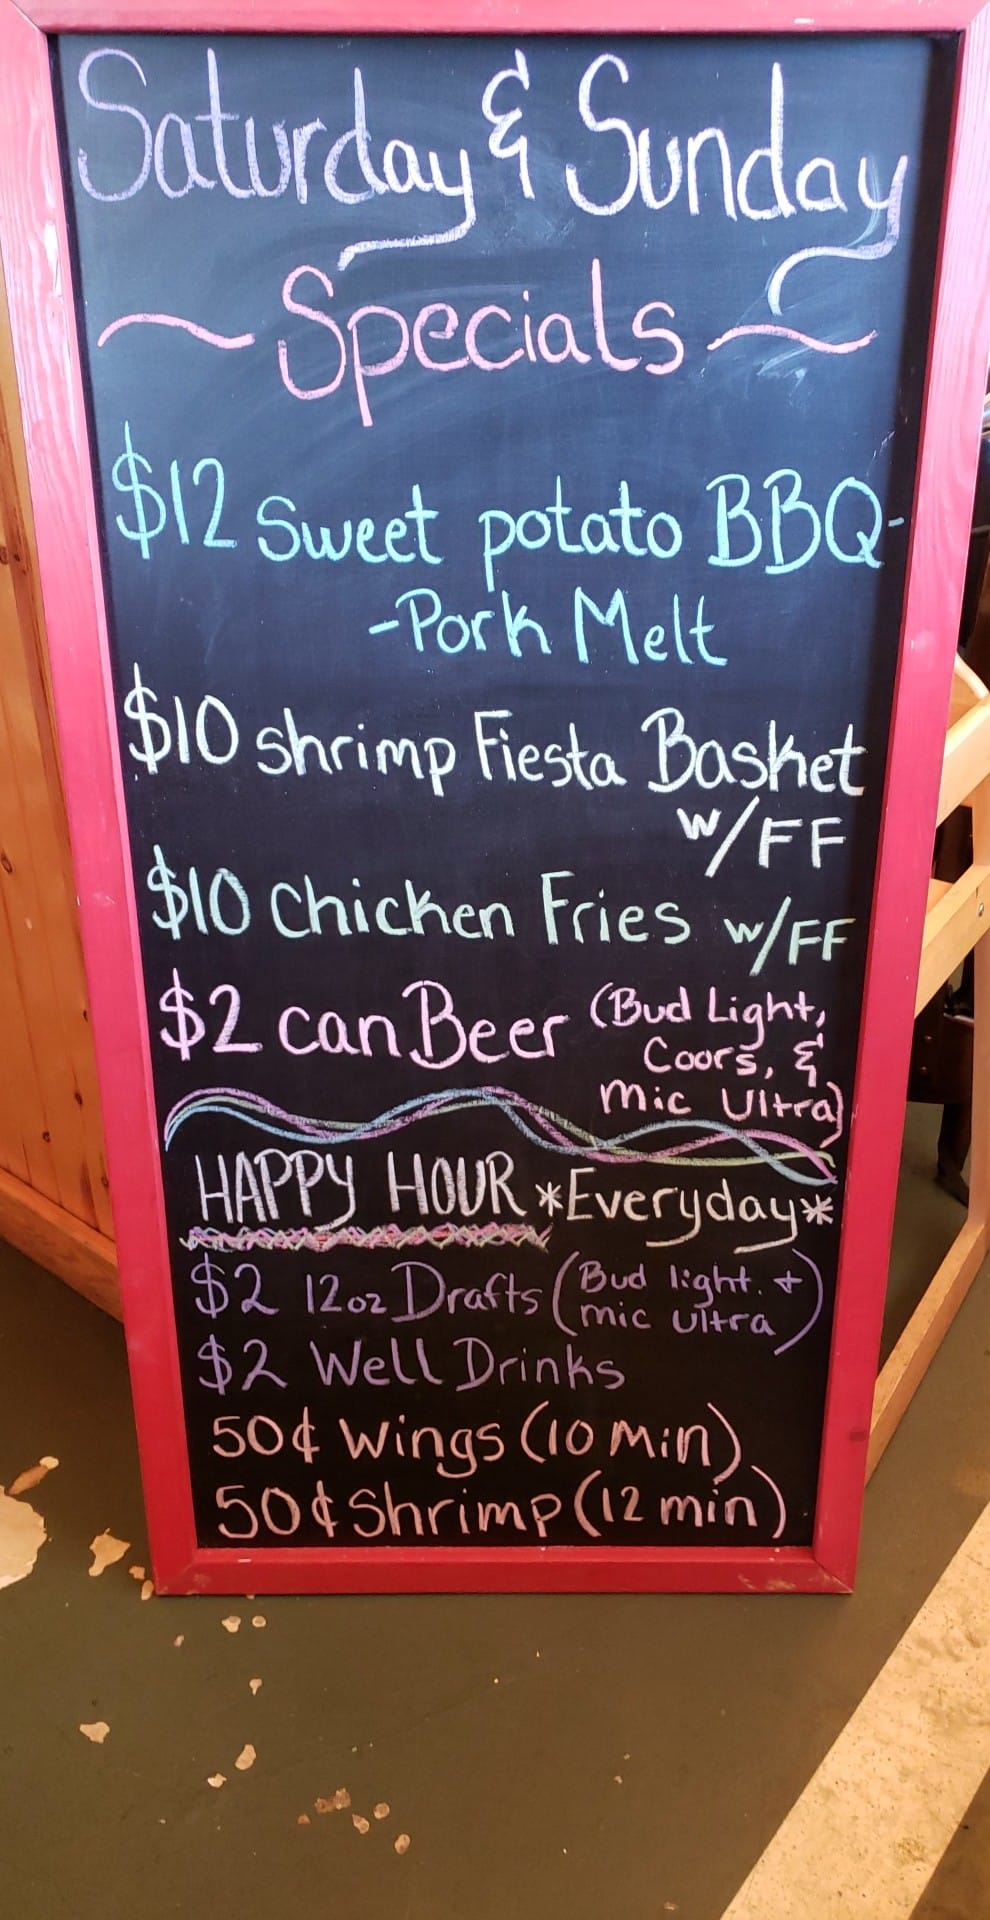 Saturday & Sunday
~ Specials ~
$12 Sweet potato BBQ-
-Pork Melt
$10 shrimp Fiesta Basket
w/FF
$10 Chicken Fries w/FF
$2 can Beer (Bud Light,
Coors, &
Mic Ultra)
HAPPY HOUR *Everyday*
$2 12oz Drafts (Bud light. +
mic ultra)
$2 Well Drinks
50¢ Wings (10 Min)
50¢ Shrimp (12 min)